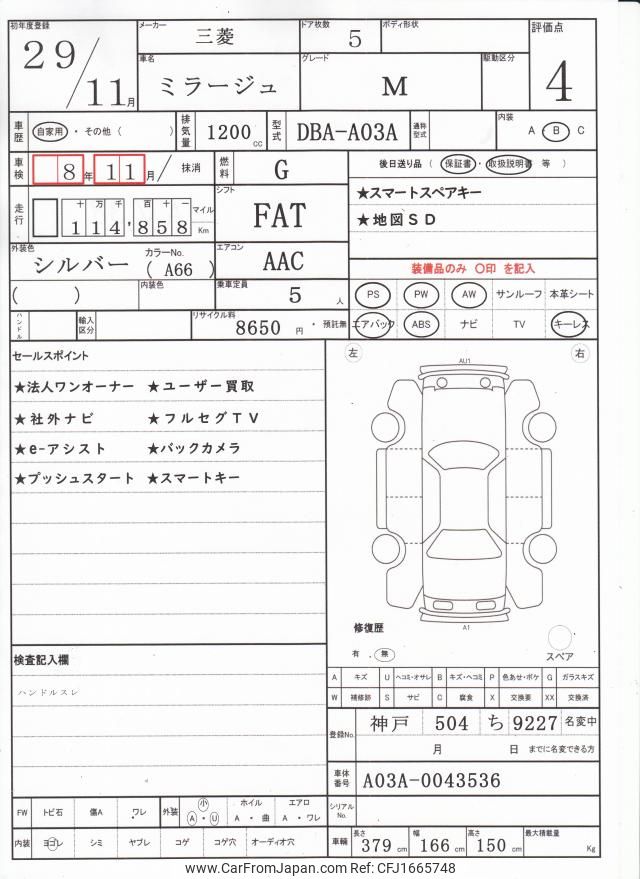 初年度登録 29/11月
メーカー 三菱
ドア枚数 5
ボディ形状
評価点 4
車名 ミラージュ
グレード M
駆動区分
車歴 自家用 ・ その他 ( )
排気量 1200 cc
型式 DBA-A03A
通称型式
内装 A ・ B C
車検 8年 11月 / 抹消
燃料 G
後日送り品 ( 保証書 ・ 取扱説明書 等 )
★スマートスペアキー
★地図SD
走行 十万千百十一 114,858 マイル Km
シフト FAT
外装色 シルバー
カラーNo. ( A66 )
エアコン AAC
装備品のみ 〇印 を記入
( )
内装色
乗車定員 5 人
PS PW AW サンルーフ 本革シート
エアバック ABS ナビ TV キーレス
ハンドル
輸入区分
リサイクル料 8650 円 ・ 預託無
セールスポイント
★法人ワンオーナー ★ユーザー買取
★社外ナビ ★フルセグTV
★e-アシスト ★バックカメラ
★プッシュスタート ★スマートキー
左 右
AU1
A1
修復歴
有 . 無
スペア
検査記入欄
ハンドルスレ
A キズ U ヘコミ・オサレ B キズ・ヘコミ P 色あせ・ボケ G ガラスキズ
W 補修跡 S サビ C 腐食 X 交換要 XX 交換済
登録No. 神戸 504 ち 9227 名変中
月 日 までに名変できる方
車体番号 A03A-0043536
シリアルNo.
FW トビ石 傷A ワレ 外装 小 A ・ U ホイル A ・ 曲 エアロ A ・ ワレ
内装 ヨゴレ シミ ヤブレ コゲ コゲ穴 オーディオ穴
車輛 長さ 379 cm 幅 166 cm 高さ 150 cm 最大積載量 Kg
www.CarFromJapan.com Ref: CFJ1665748